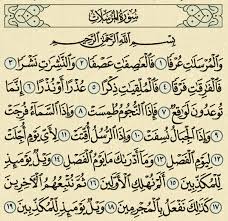 سُورَةُ المُرْسَلَات
بِسْمِ ٱللَّهِ ٱلرَّحْمَٰنِ ٱلرَّحِيمِ
وَٱلْمُرْسَلَٰتِ عُرْفًا ١ فَٱلْعَٰصِفَٰتِ عَصْفًا ٢ وَٱلنَّٰشِرَٰتِ نَشْرًا ٣
فَٱلْفَٰرِقَٰتِ فَرْقًا ٤ فَٱلْمُلْقِيَٰتِ ذِكْرًا ٥ عُذْرًا أَوْ نُذْرًا ٦ إِنَّمَا
تُوعَدُونَ لَوَٰقِعٌ ٧ فَإِذَا ٱلنُّجُومُ طُمِسَتْ ٨ وَإِذَا ٱلسَّمَآءُ فُرِجَتْ
٩ وَإِذَا ٱلْجِبَالُ نُسِفَتْ ١٠ وَإِذَا ٱلرُّسُلُ أُقِّتَتْ ١١ لِأَىِّ يَوْمٍ أُجِّلَتْ
١٢ لِيَوْمِ ٱلْفَصْلِ ١٣ وَمَآ أَدْرَىٰكَ مَا يَوْمُ ٱلْفَصْلِ ١٤ وَيْلٌ يَوْمَئِذٍ
لِّلْمُكَذِّبِينَ ١٥ أَلَمْ نُهْلِكِ ٱلْأَوَّلِينَ ١٦ ثُمَّ نُتْبِعُهُمُ ٱلْءَاخِرِينَ
١٧ كَذَٰلِكَ نَفْعَلُ بِٱلْمُجْرِمِينَ ١٨ وَيْلٌ يَوْمَئِذٍ لِّلْمُكَذِّبِينَ ١٩